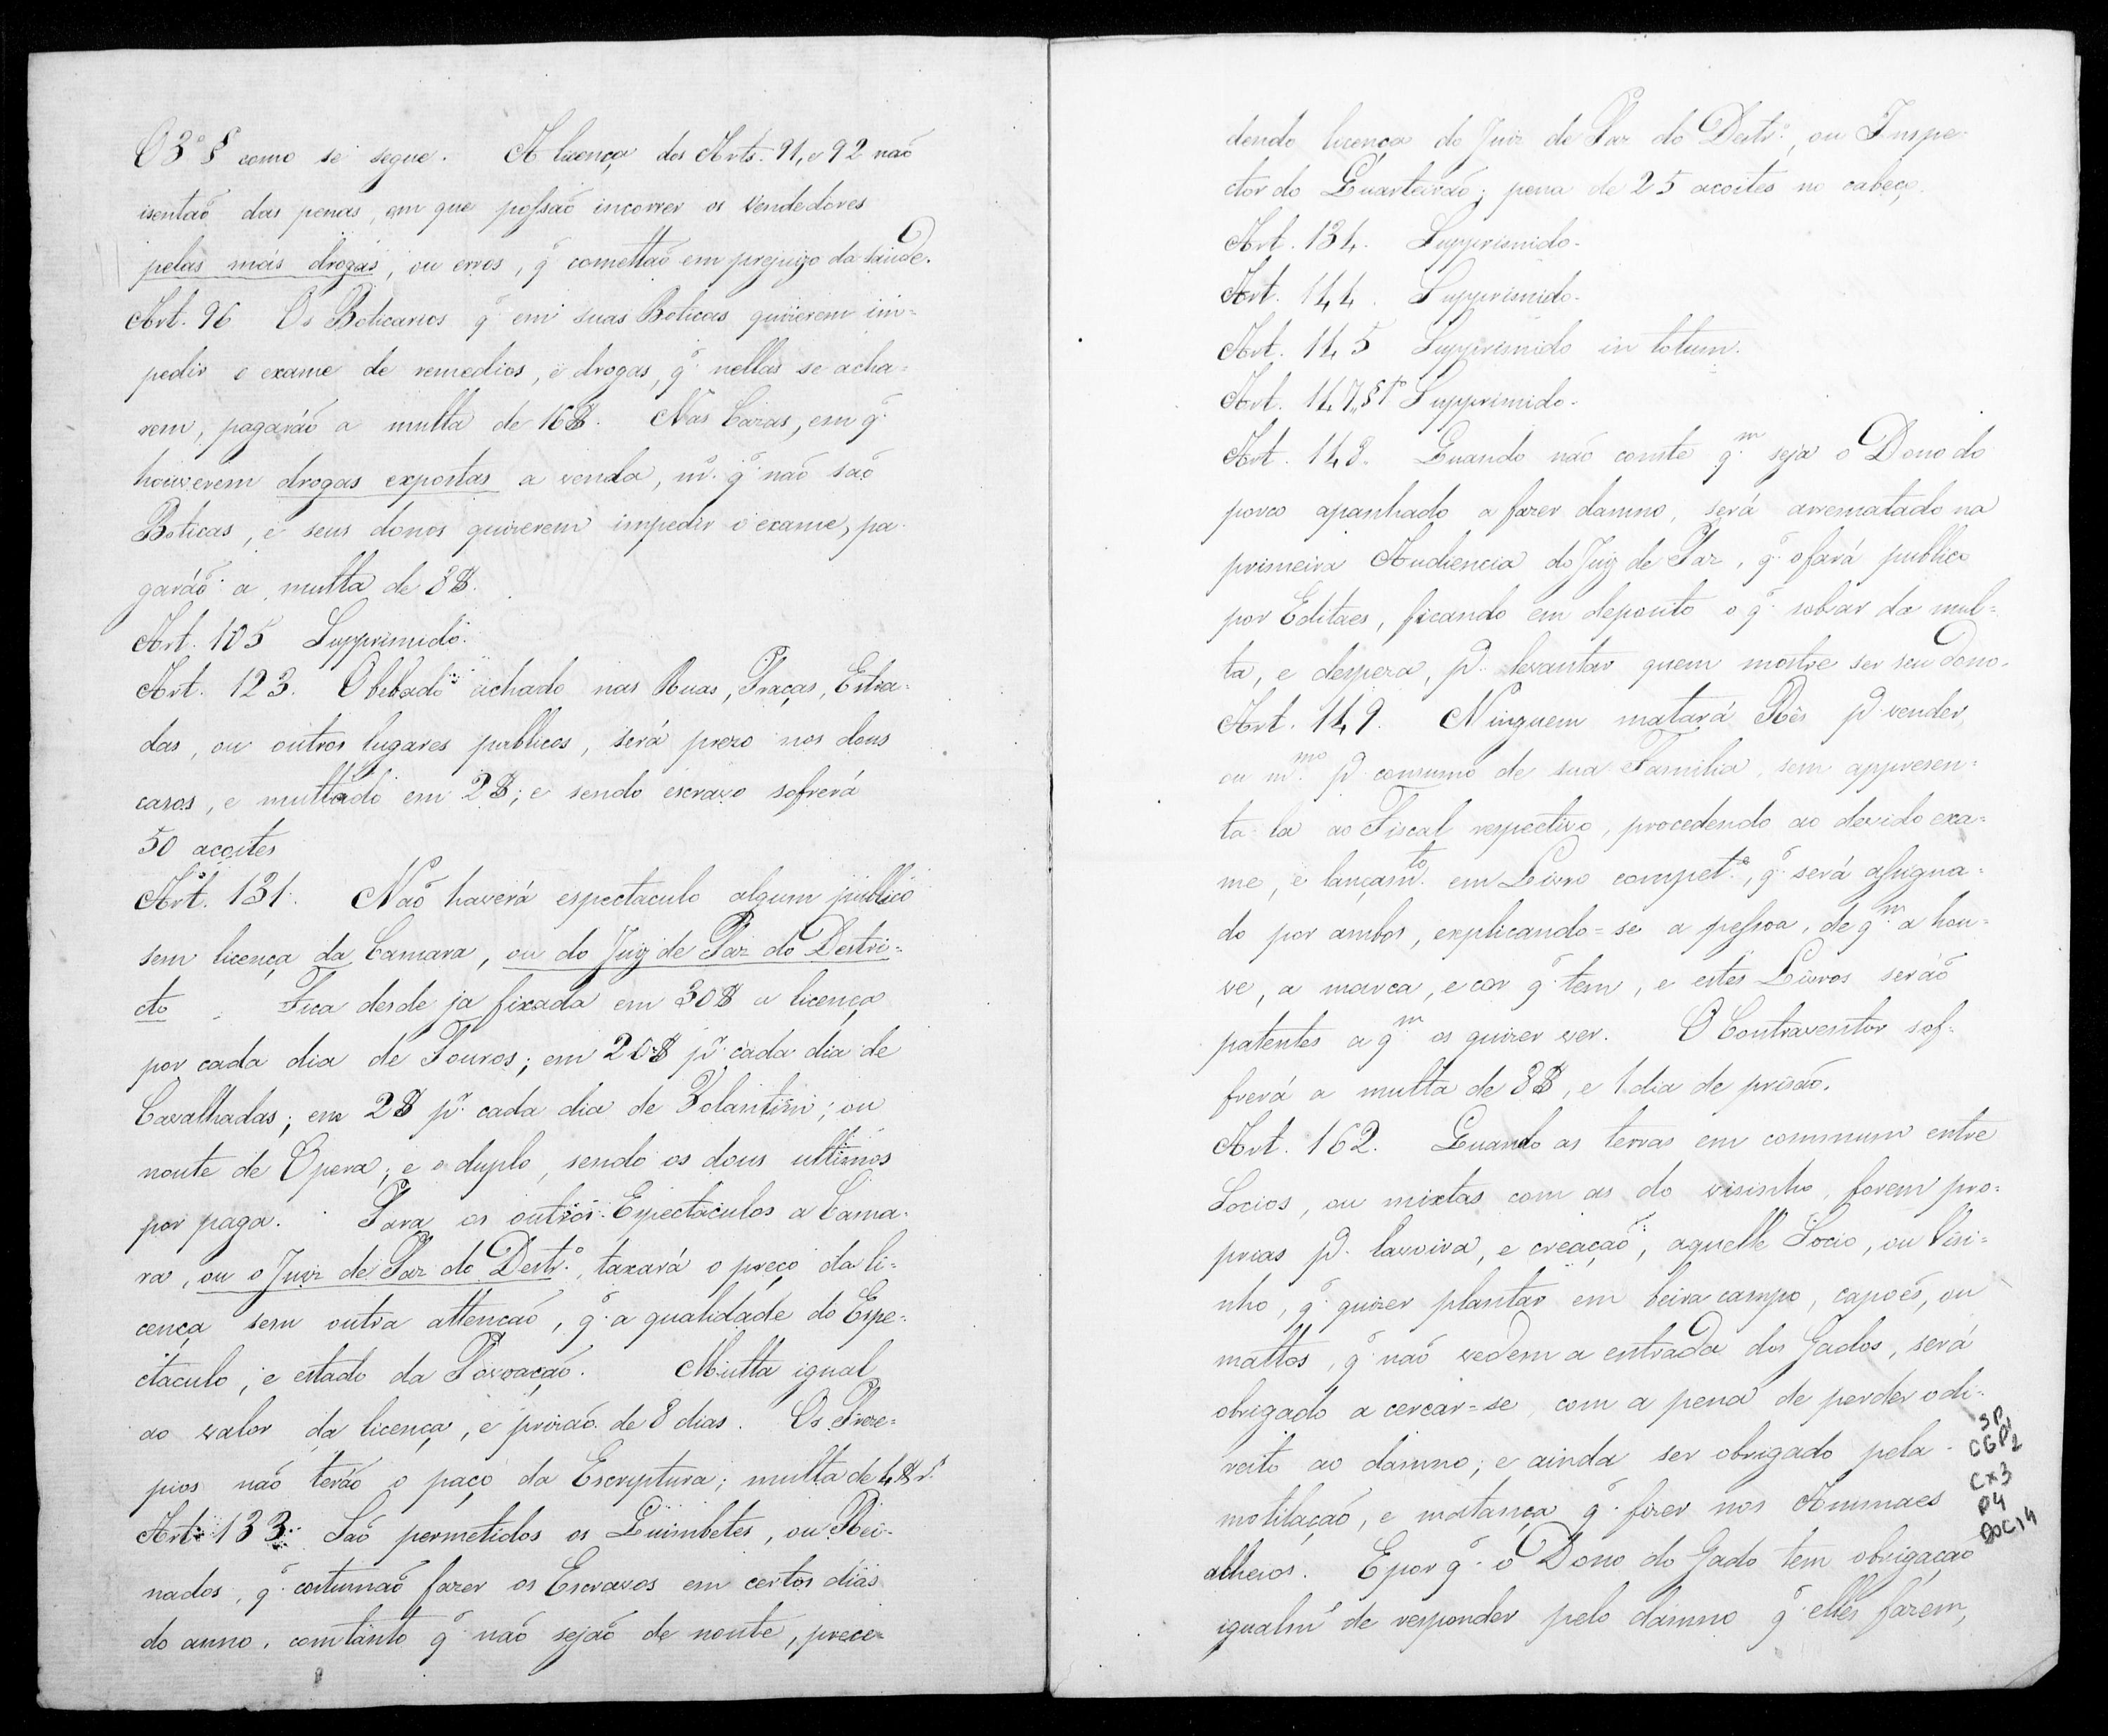 O 3º § como se segue. A licença dos Arts. 91, e 92 naõ
isentaõ das penas, em que possaõ incorrer os vendedores
pelas más drogas, ou erros, q̃ comettaõ em prejuizo da saude.
Art. 96 Os Boticarios q̃ em suas Boticas quizerem im=
pedir o exame de remedios, e drogas, q̃ nellas se acha=
rem, pagaráõ a multa de 16$. Nas Cazas, em q̃
houverem drogas expostas a venda, m.º q̃ naõ saõ
Boticas, e seus donos quizerem impedir o exame, pa=
garáõ a multa de 8$.
Art. 105 Supprimido.
Art. 123. O bebado achado nas Ruas, Praças, Estra=
das, ou outros lugares publicos, será prezo nos dous
casos, e multado em 2$; e sendo escravo sofrerá
50 açoites
Art. 131. Naõ haverá espectaculo algum publico
sem licença da Camara, ou do Juiz de Paz do Destri=
cto. Fica desde ja fixada em 30$ a licença
por cada dia de Touros; em 20$ p.r cada dia de
Cavalhadas; em 2$ p.r cada dia de Volantim; ou
noute de Opera; e o duplo, sendo os dous ultimos
por paga. Para os outros Espectaculos a Cama=
ra, ou o Juiz de Paz do Destr.º, taxará o preço da li=
cença sem outra attencaõ, q̃ a qualidade do Espe=
ctaculo, e estado da Povoaçaõ. Multa igual
ao valor da licença, e prizaõ de 8 dias. Os Preze=
pios naõ terão o paço da Escriptura; multa de 4$ r.s
Art. 133. Saõ permetidos os Quimbetes, ou Rei=
nados, q̃ costumaõ fazer os Escravos em certos dias
do anno, comtanto q̃ naõ sejaõ de noute, prece=
dendo licença do Juiz de Paz do Destr.º, ou Inspe=
ctor do Quarteiraõ; pena de 25 acoites no cabeça.
Art. 134. Supprimido.
Art. 144. Supprimido.
Art. 145 Supprimido in totum.
Art. 147, § 1º Supprimido.
Art. 148. Quando naõ conste q.m seja o Dono do
porco apanhado a fazer damno, será arrematado na
primeira Audiencia do Juiz de Paz, q̃ o fará publico
por Editaes, ficando em deposito o q̃ sobrar da mul=
ta, e despeza, p.a levantar quem mostre ser seu dono.
Art. 149. Ninguem matará Rês p.a vender,
ou m.mo p.a consumo de sua Familia, sem appresen=
ta-la ao Fiscal respectivo, procedendo ao devido exa=
me, e lançam.to em Livro compet.e, q̃ será assigna=
do por ambos, explicando=se a pessoa, de q.m a hou=
ve, a marca, e cor q̃ tem, e estes Livros serão
patentes a q.m os quizer ver. O Contraventor sof=
frerá a multa de 8$, e 1 dia de prisaõ.
Art. 162. Quando as terras em commum entre
Socios, ou mixtas com as do visinho, forem pro=
prias p.a lavoira, e creaçaõ, aquelle Socio, ou Visi=
nho, q̃ quizer plantar em beira campo, capoẽs, ou
mattos, q̃ naõ vedem a entrada dos Gados, será
obrigado a cercar=se, com a pena de perder o di=
reito ao damno; e ainda ser obrigado pela
motilaçaõ, e matança q̃ fizer nos Animaes
alheios. E por q̃ o Dono do Gado tem obrigaçaõ
igualm.e de responder pelo damno q̃ elles fázem,
SP
CGP2
Cx3
P4
Doc14